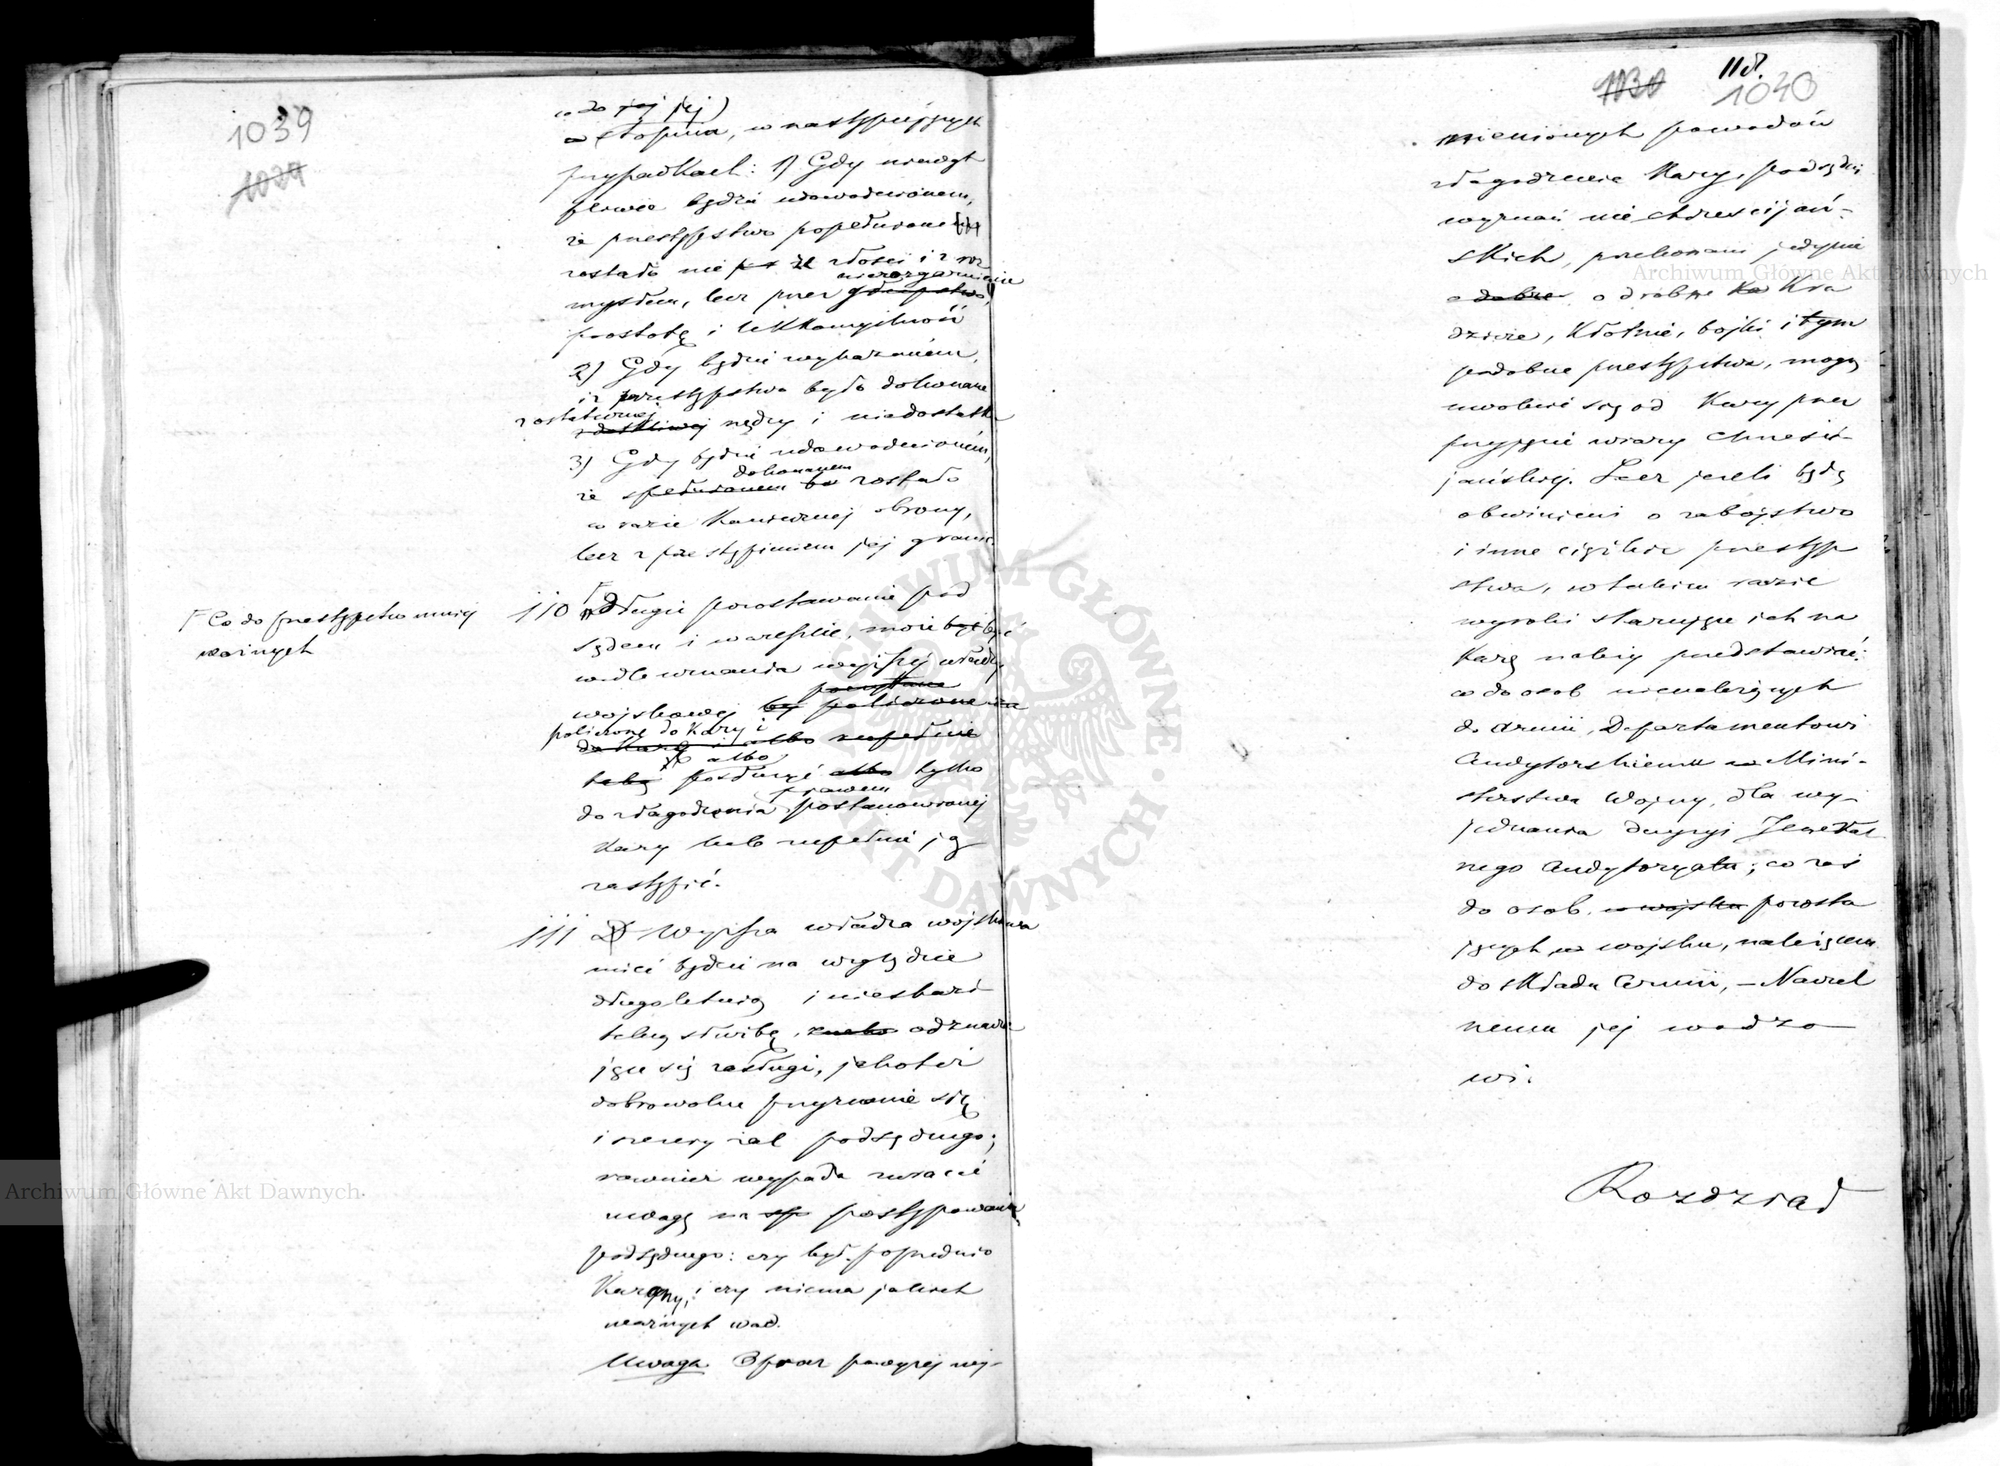 1039
1029
co do jej jej)
a stopnia, w następujących
przypadkach: 1) Gdy niewąt
pliwie będzie udowodnionem,
że przestępstwo popełnione
zostało nie ze złości i z roz
nierozgarnienie
mysłem, lecz przez głupstwo,
prostotę i lekkomyślność
2) Gdy będzie wykazanem,
iż przestępstwo było dokonane
z ostatecznej
z dotkliwej nędzy i niedostatku
3) Gdy będzie udowodnionem,
dokonanem
że spełnionem zostało
w razie koniecznej obrony,
lecz z przestąpieniem jej granic.
F Co do przestępstw mniej
ważnych
110 F Długie pozostawanie pod
sądem i w areszcie, może być być
wedle uznania wyższej władzy
poczytane
wojskowej policzone za
policzone do kary i
do kary i albo zupełnie
albo
karę posłużyć albo tylko
prawem
do złagodzenia postanowionej
kary lub zupełnie ją
zastąpić.
111 Wyższa władza wojskowa
mieć będzie na względzie
długoletnią i nieskazi
telną służbę, odznacza
jące się zasługi, jakoteż
dobrowolne przyznanie się
i szczery żal podsądnego;
również wypada zwracać
uwagę na postępowanie
podsądnego: czy był poprzednio
karany, i czy niema jakich
ważnych wad.
Uwaga Oprócz powyżej wy-
118.
1030 1040
mienionych powodów
złagodzenia kary, podsądni
wyznań nie chrześcijań-
skich, przekonani jedynie
o drobne kra
dzieże, kłótnie, bójki i tym
podobne przestępstwa, mogą
uwolnić się od kary przez
przyjęcie wiary chrześci-
jańskiej. Lecz jeżeli będą
obwinieni o zabójstwo
i inne ciężkie przestęp
stwa, w takim razie
wyroki skazujące ich na
karę należy przedstawiać:
co do osób nienależących
do armii, Departamentowi
Audytorskiemu Mini-
sterstwa Wojny, dla wy-
jednania decyzyi Jeneral
nego Audytoryatu; co zaś
do osób, w wojsku pozosta
jących w wojsku, należącem
do składu Armii, – Naczel
nemu jej wodzo
wi.
Rozdział
Archiwum Główne Akt Dawnych
Archiwum Główne Akt Dawnych
ARCHIWUM GŁÓWNE AKT DAWNYCH